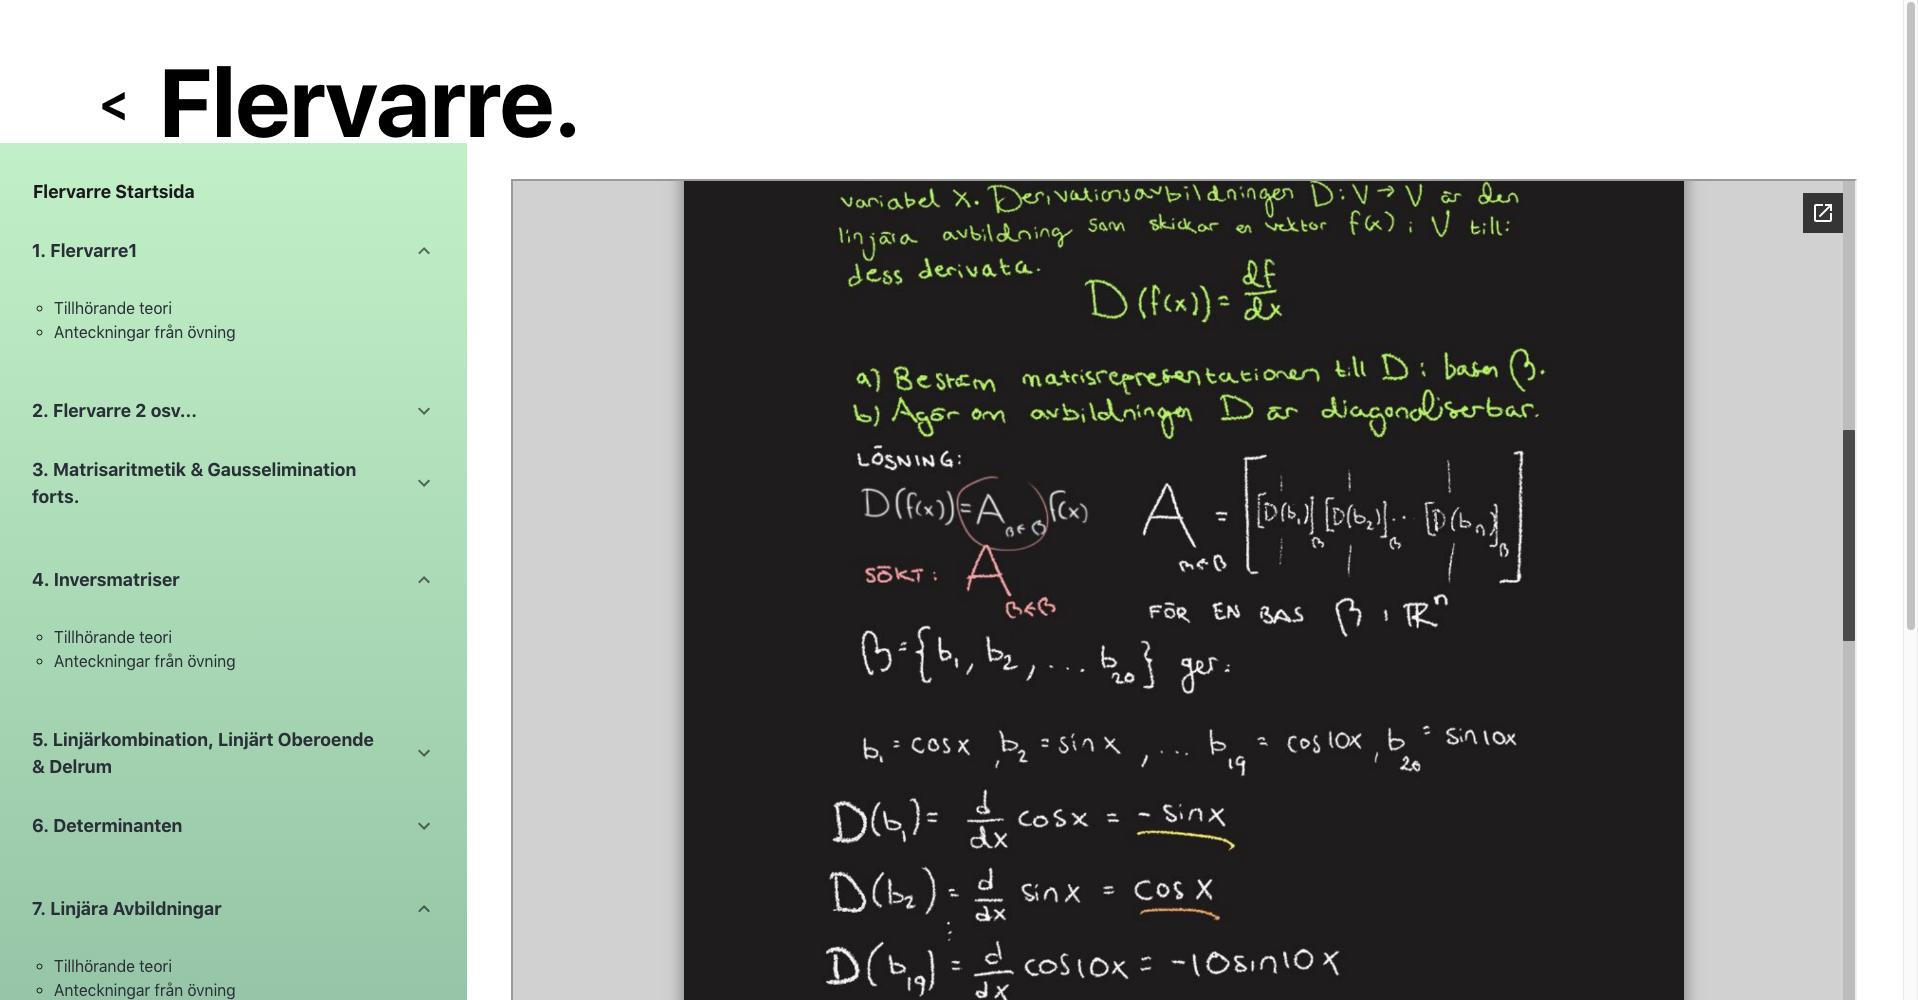 < Flervarre.
Flervarre Startsida
1. Flervarre1
Tillhörande teori
Anteckningar från övning
2. Flervarre 2 osv...
3. Matrisaritmetik & Gausselimination
forts.
4. Inversmatriser
Tillhörande teori
Anteckningar från övning
5. Linjärkombination, Linjärt Oberoende
& Delrum
6. Determinanten
7. Linjära Avbildningar
Tillhörande teori
Anteckningar från övning
variabel x. Derivationsavbildningen D: V → V är den
linjära avbildning som skickar en vektor f(x) i V till:
dess derivata.
D(f(x)) = df/dx
a) Bestäm matrisrepresentationen till D i basen β.
b) Agör om avbildningen D är diagonaliserbar.
LÖSNING:
D(f(x)) = A β←β f(x)
A β←β = [[D(b₁)]β [D(b₂)]β ... [D(bₙ)]β]
SÖKT: A β←β
FÖR EN BAS β i ℝⁿ
β = {b₁, b₂, ... b₂₀} ger:
b₁ = cosx, b₂ = sinx, ... b₁₉ = cos10x, b₂₀ = sin10x
D(b₁) = d/dx cosx = - sinx
D(b₂) = d/dx sinx = cosx
⋮
D(b₁₉) = d/dx cos10x = -10sin10x